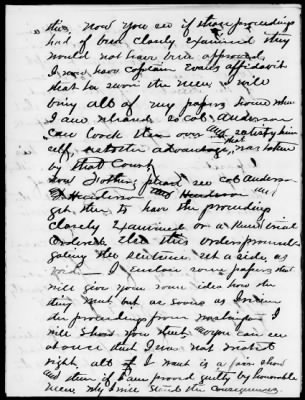 this, now you see if those proceedings
had of been closely examined they
would not have been approved,
I now have Captain Evans affidavit
that he swore the men, I will
bring all of my papers home when
I am            so Col Anderson
can look them over and satisfy him
self, what advantage, was taken
by that Court
now Nothing       see Col Anderson
D Henderson and Henderson and
get them to have the proceedings
closely Examined or a New trial
ordered Else this order promul
gating the sentence set aside, as
void - I Enclose some papers that
will give you some idea how the
thing went, but as soon as I receive
the proceedings from Washington I
will show you that, &c you can see
at once that I was not treated
right. all I want is a fair show
and then if I am proved guilty by honorable
men why I will stand the consequences.